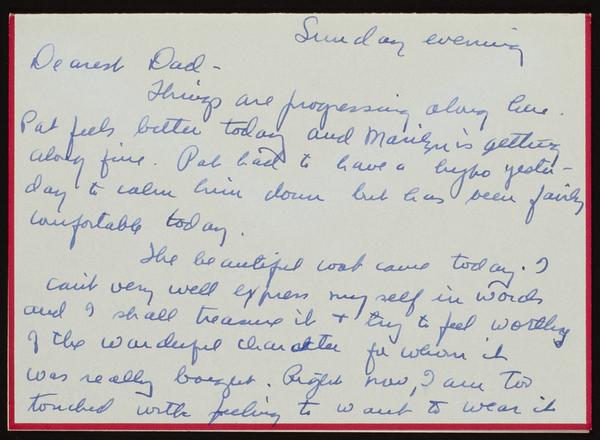 Sunday evening
Dearest Dad -
Things are progressing along here.
Pat feels better today and Marilyn is getting
along fine. Pat had to have a hypo yester-
day to calm him down but has been fairly
comfortable today.
The beautiful coat came today. I
can't very well express my self in words
and I shall treasure it + try to feel worthy
of the wonderful character for whom it
was really bought. Right now, I am too
touched with feeling to want to wear it